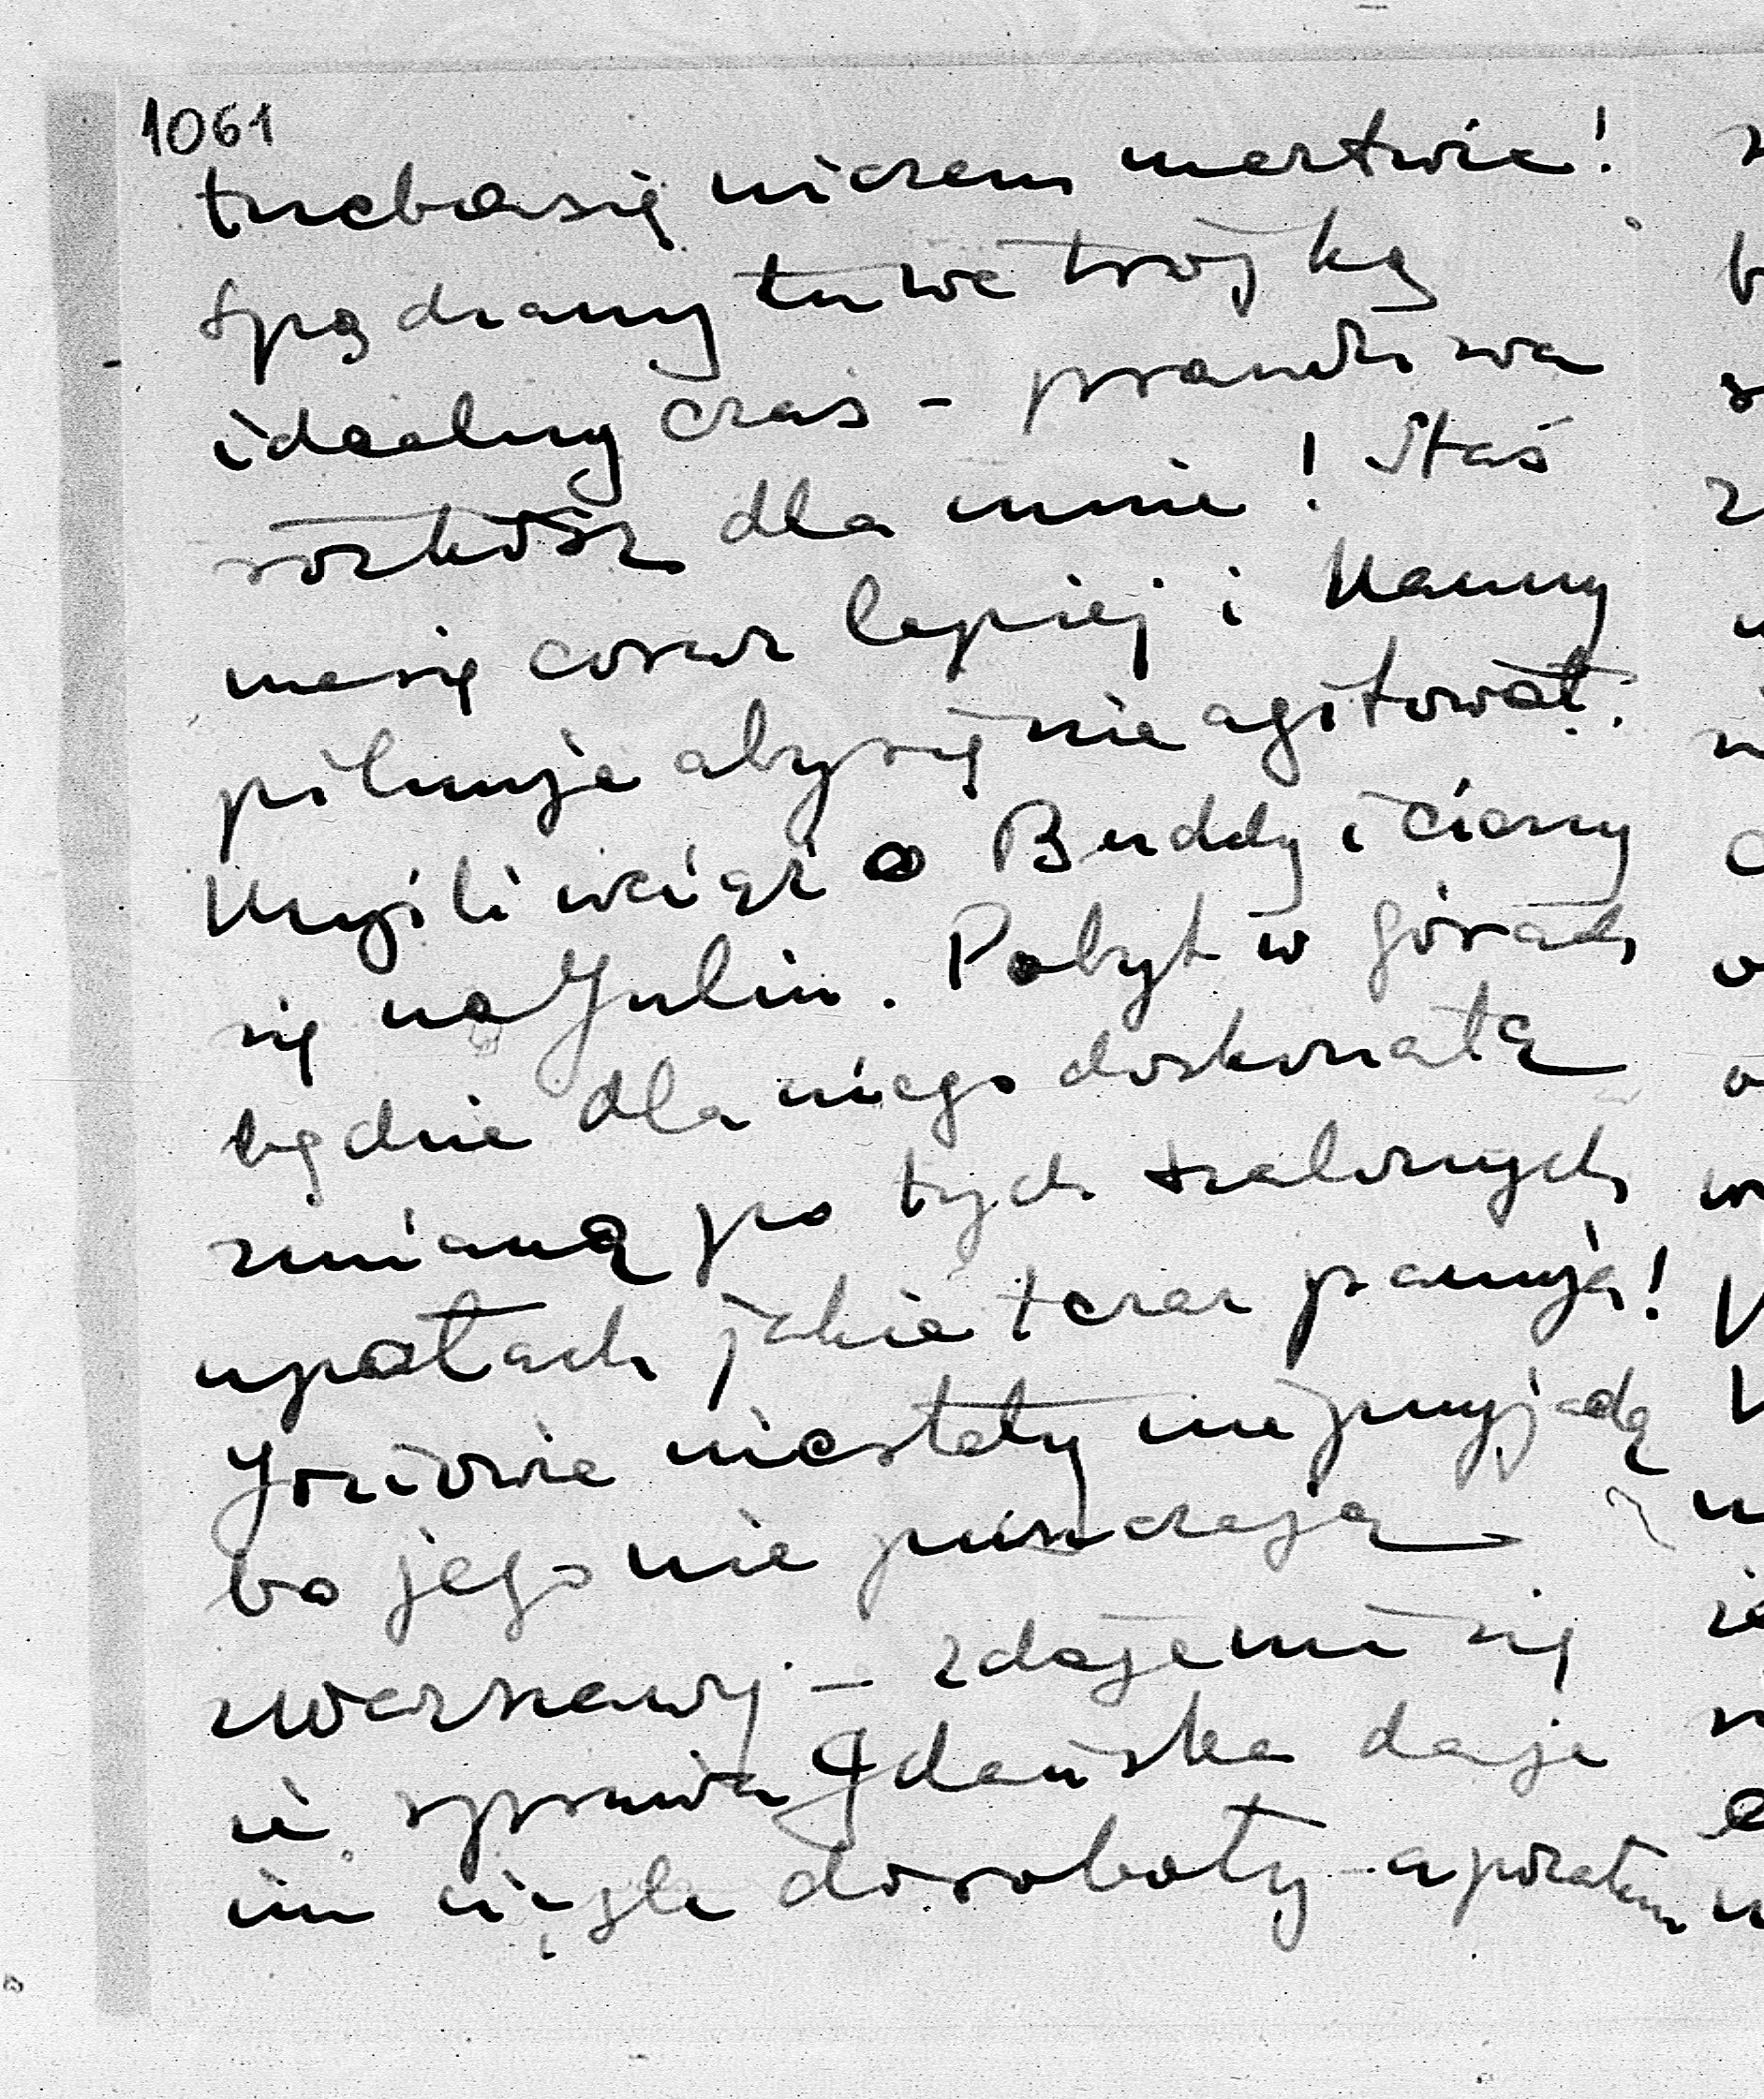 1061
trzeba się niczem martwić!
Spędzamy tu we trójkę
idealny czas - prawdziwa
rozkosz dla mnie! Staś
ma się coraz lepiej i Mamy
pilnuje aby się nie agitował.
Myśli wciąż o Buddy i cieszy
się na Julin. Pobyt w górach
będzie dla niego doskonałą
zmianą po tych szalonych
upałach jakie teraz panują!
Joziowie niestety nie przyjadą
bo jego nie puszczają
z Warszawy - zdaje mi się
że sprawa Gdańska daje
im ciągle do roboty - a pozatem